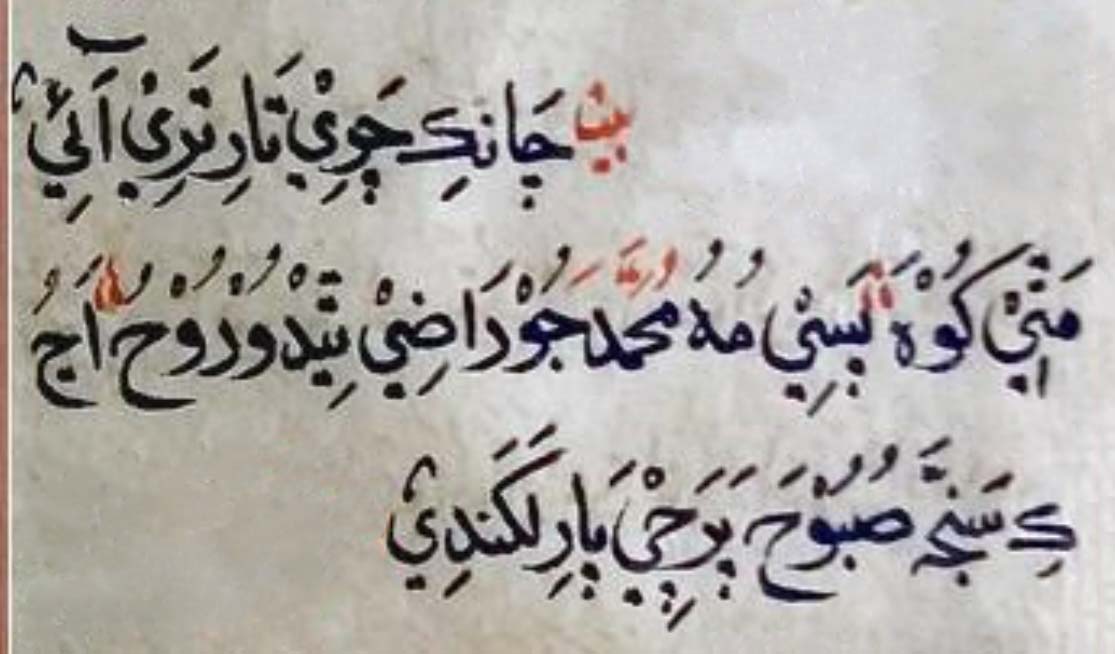 بيت چانڪِ چَوِيْ تارِ تَرِيْ آئِيْ
مَٿِيْ کُوْهَ بَسِيْ مُہُ مُحَمَّدَ جُوْ رَاضِيْ ٿِيَنْدُوْ رُوْحُ اَڄُ
ڪِ سَنجَّہ صُبُوْحَ پَرَچِيْ پارِ لَکَندِيْ